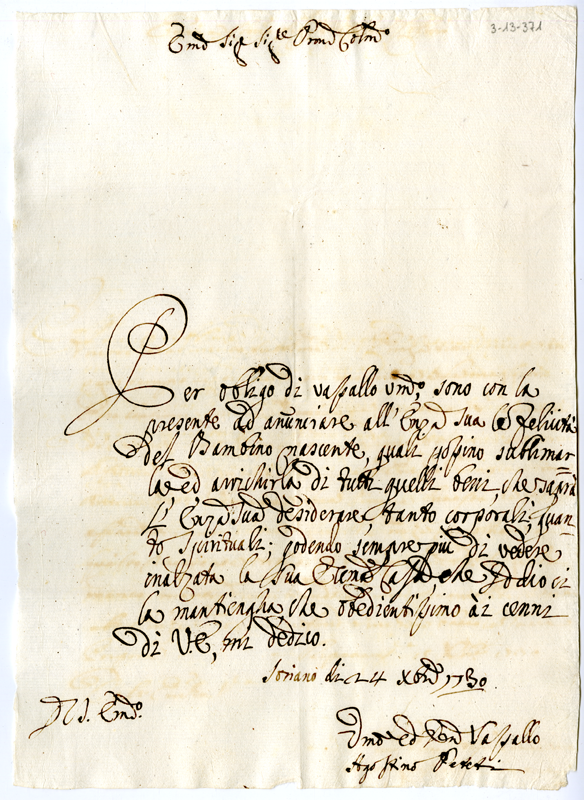 3-13-371
Emo Sig. Sig.re Pr͠ne Col͠mo
Per obligo di vassallo umo, sono con la
presente ad anunciare all'Em͠za Sua le felicità
del Bambino nascente, quali possino sublimar
la ed arrichirla di tutti quelli beni, che saprà
L'Em͠za Sua desiderare tanto corporali, quan
to spirituali; godendo sempre più di vedere
inalzata la sua Casa, che Iddio ci
la mantenga, che obedientissimo ài cenni
di V.E, mi dedico.
Soriano di 24 Xbre 1730
D V. Em͠o.
Umo ed Vassallo
Agostino